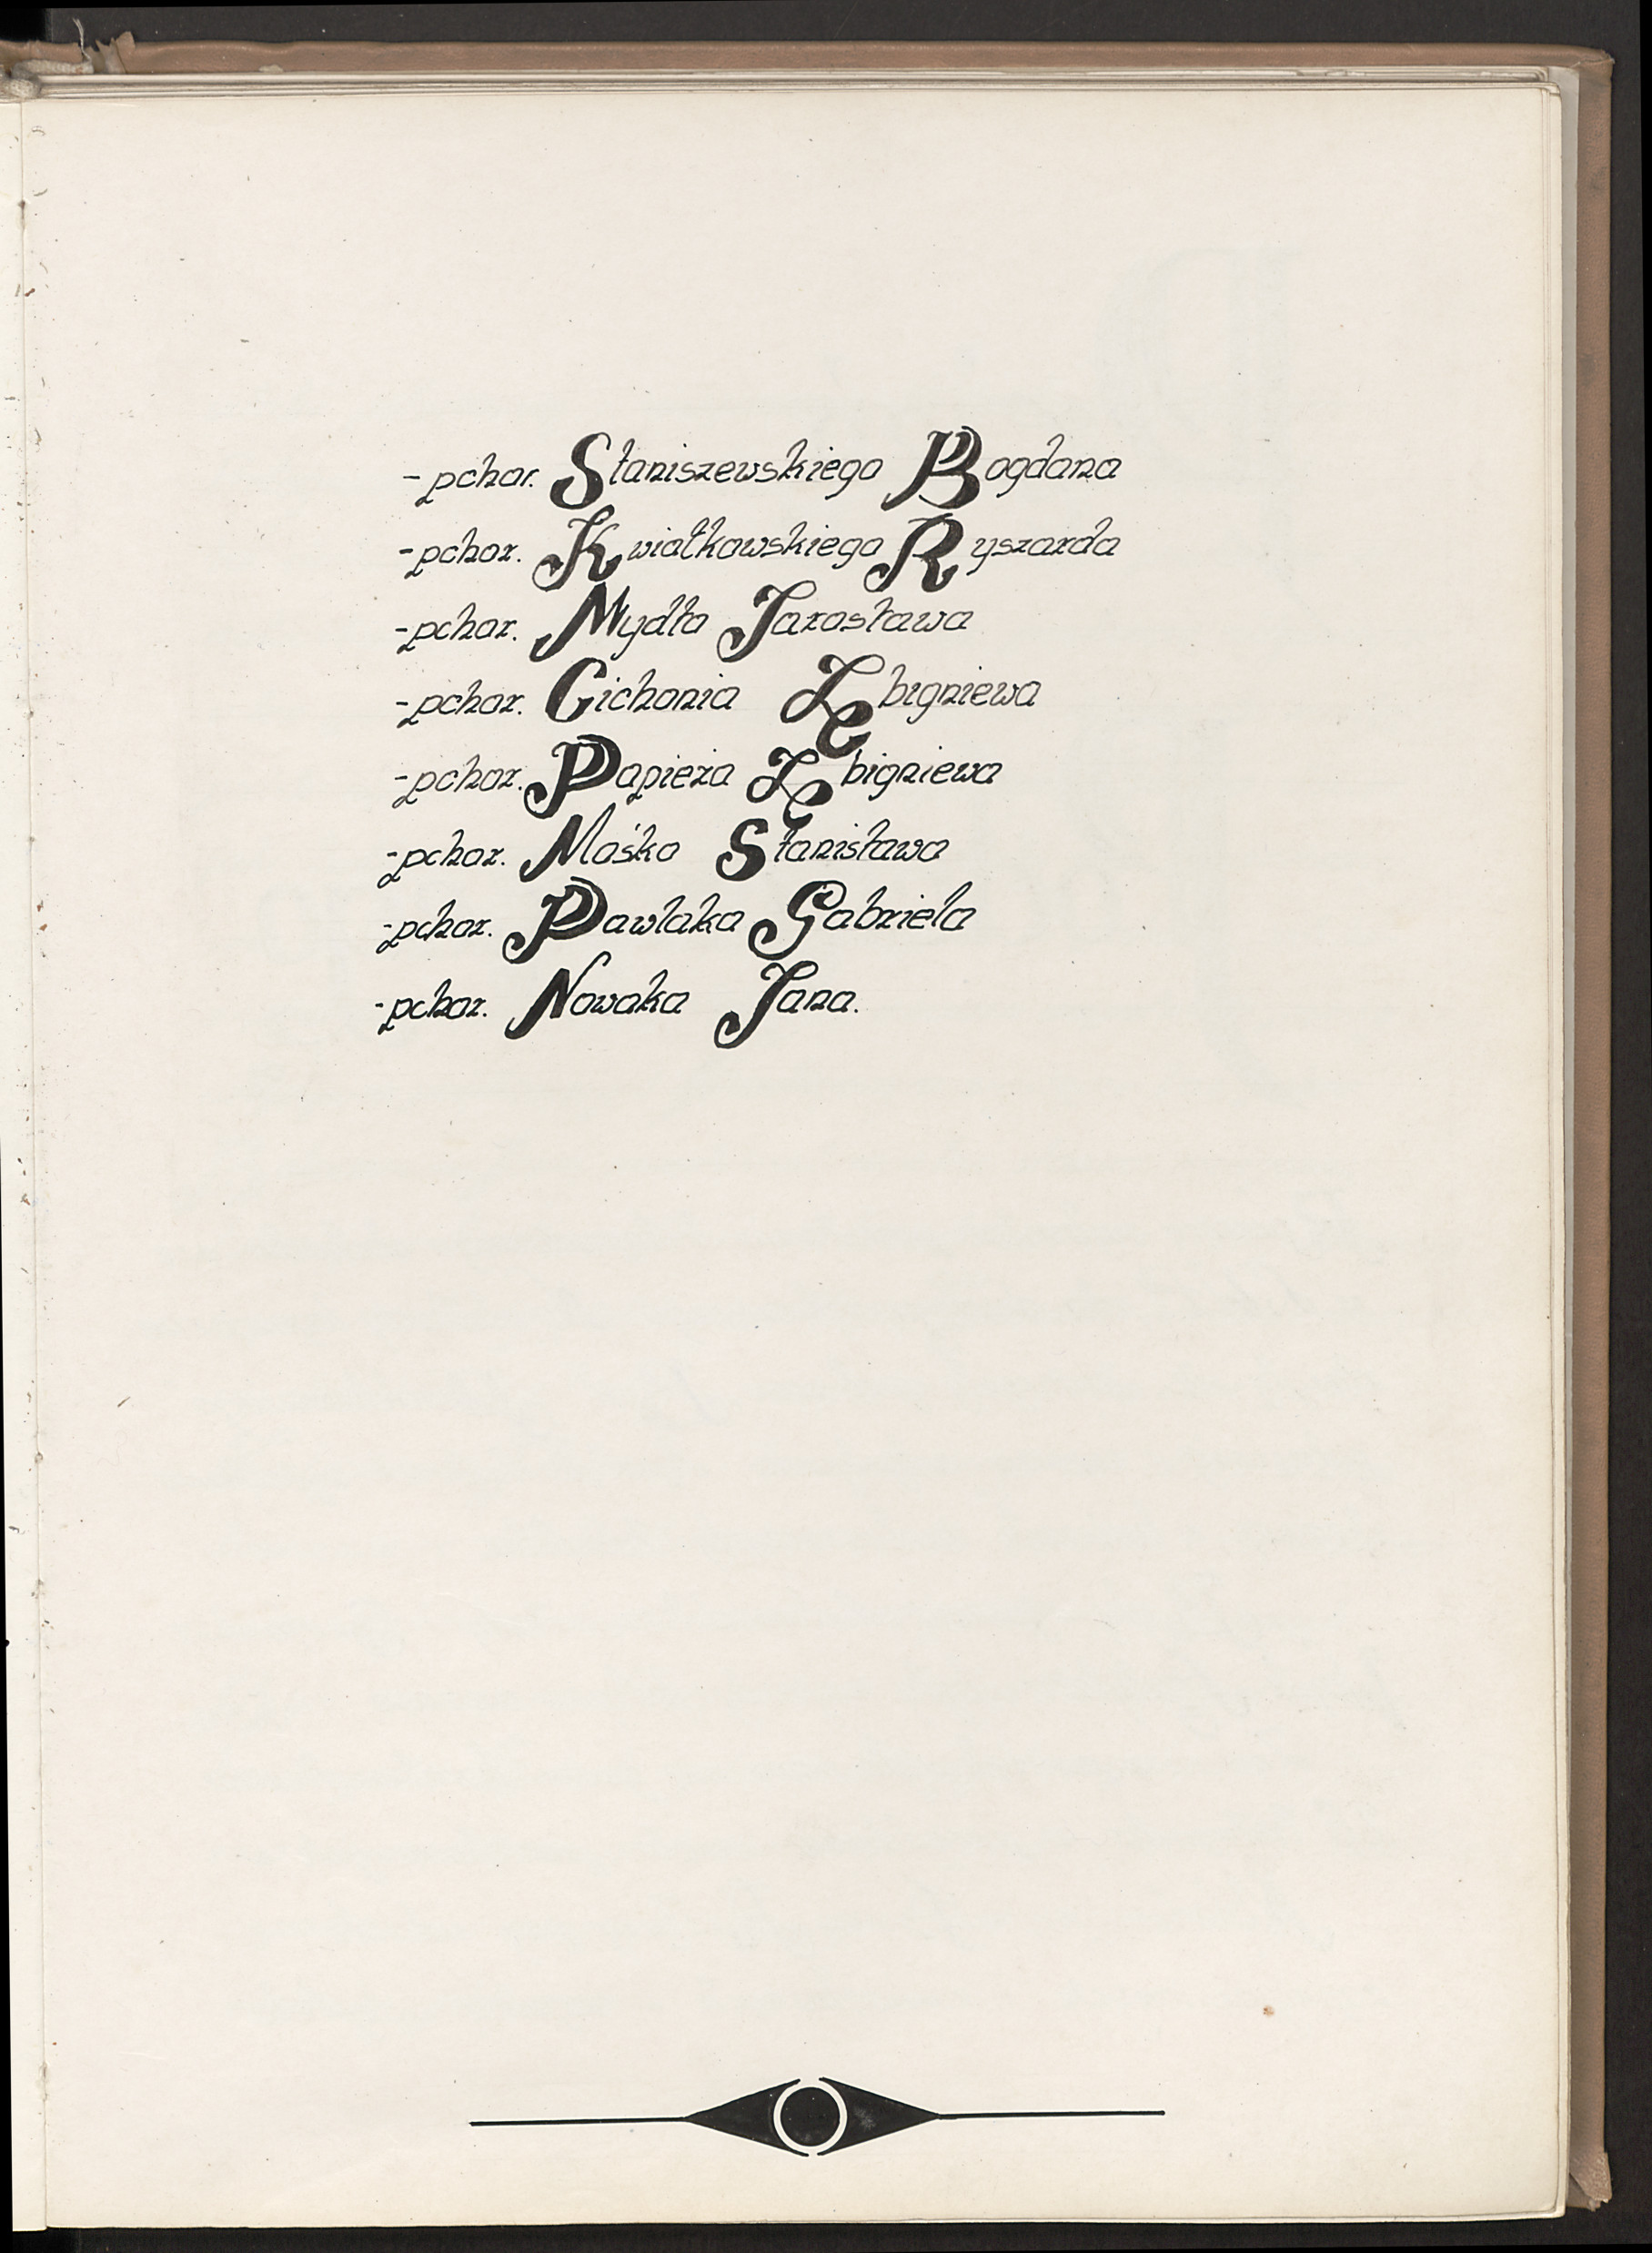 - pchor. Staniszewskiego Bogdana
- pchor. Kwiatkowskiego Ryszarda
- pchor. Mydło Jarosława
- pchor. Cichonia Zbigniewa
- pchor. Papieża Zbigniewa
- pchor. Mośko Stanisława
- pchor. Pawlaka Gabriela
- pchor. Nowaka Jana.